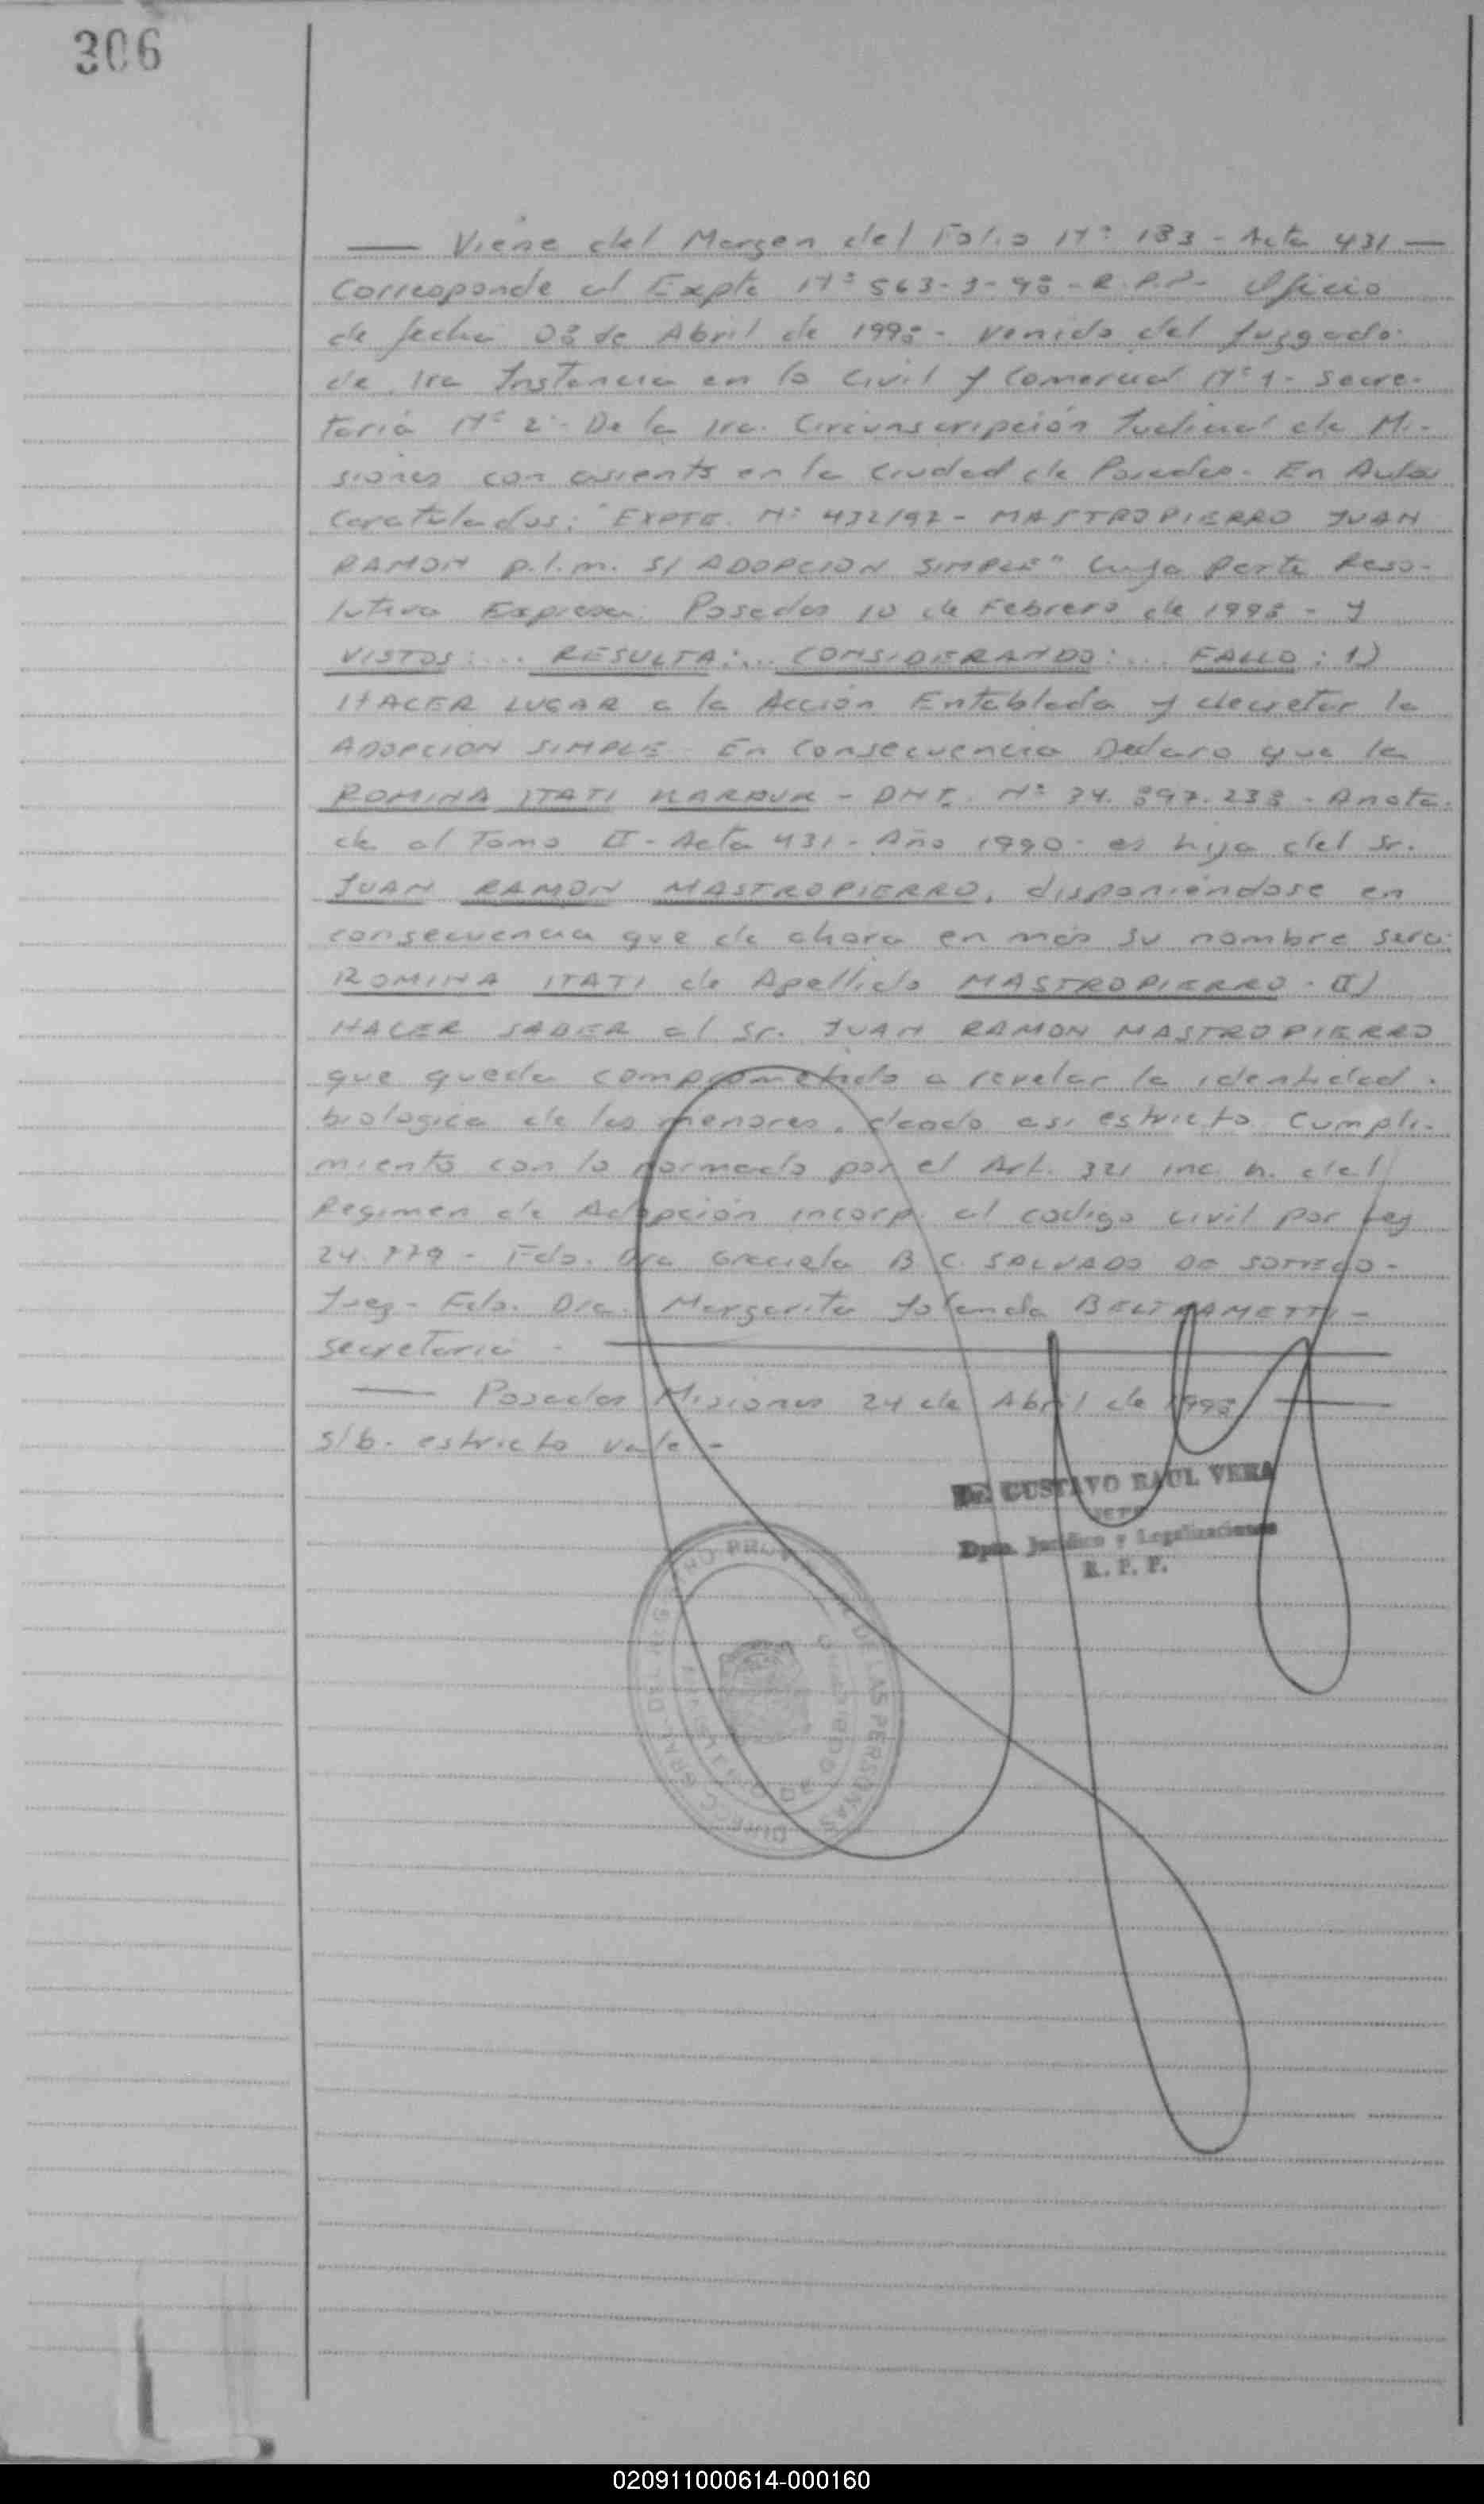 306
— Viene del Margen del Folio Nº 183 - Acta 431 —
Corresponde al Expte Nº 563-3-98 - R.P.P. - Oficio
de fecha 08 de Abril de 1998 - venido del Juzgado
de 1ra Instancia en lo Civil y Comercial Nº 1 - Secre-
taria Nº 2 - De la 1ra. Circunscripción Judicial de Mi-
siones con asiento en la Ciudad de Posadas - En Autos
Caratulados: "EXPTE. Nº 432/97 - MASTROPIERRO JUAN
RAMON p.l.m. S/ ADOPCION SIMPLE" Cuya Parte Reso-
lutiva Expresa: Posadas 10 de Febrero de 1998 - Y
VISTOS:... RESULTA:... CONSIDERANDO:... FALLO: 1)
HACER LUGAR a la Acción Entablada y decretar la
ADOPCION SIMPLE - En Consecuencia Declaro que la
ROMINA ITATI - DNI. Nº 34.897.238 - Anota-
da al Tomo II - Acta 431 - Año 1990 - es hija del Sr.
JUAN RAMON MASTROPIERRO, disponiéndose en
consecuencia que de ahora en más su nombre será:
ROMINA ITATI de Apellido MASTROPIERRO. II)
HACER SABER al Sr. JUAN RAMON MASTROPIERRO
que queda comprometido a revelar la identidad
biologica de los menores, deado asi estricto Cumpli-
miento con lo normado por el Art. 321 inc. h. del
Regimen de Adopción incorp. al codigo civil por Ley
24.779 - Fdo. Dra Graciela B. C. SALVADO DE SOTELO -
Juez - Fdo. Dra. Margarita Yolanda BELTRAMETTI -
secretaria -
— Posadas Misiones 24 de Abril de 1998 —
s/b. estricto vale -
Dr. GUSTAVO RAUL VERA
JEFE
Dpto. Jurídico y Legalizaciones
R. P. P.
DIRECC. GRAL. DEL REG. PROV. DE LAS PERSONAS
MINISTERIO DE GOBIERNO
020911000614-000160